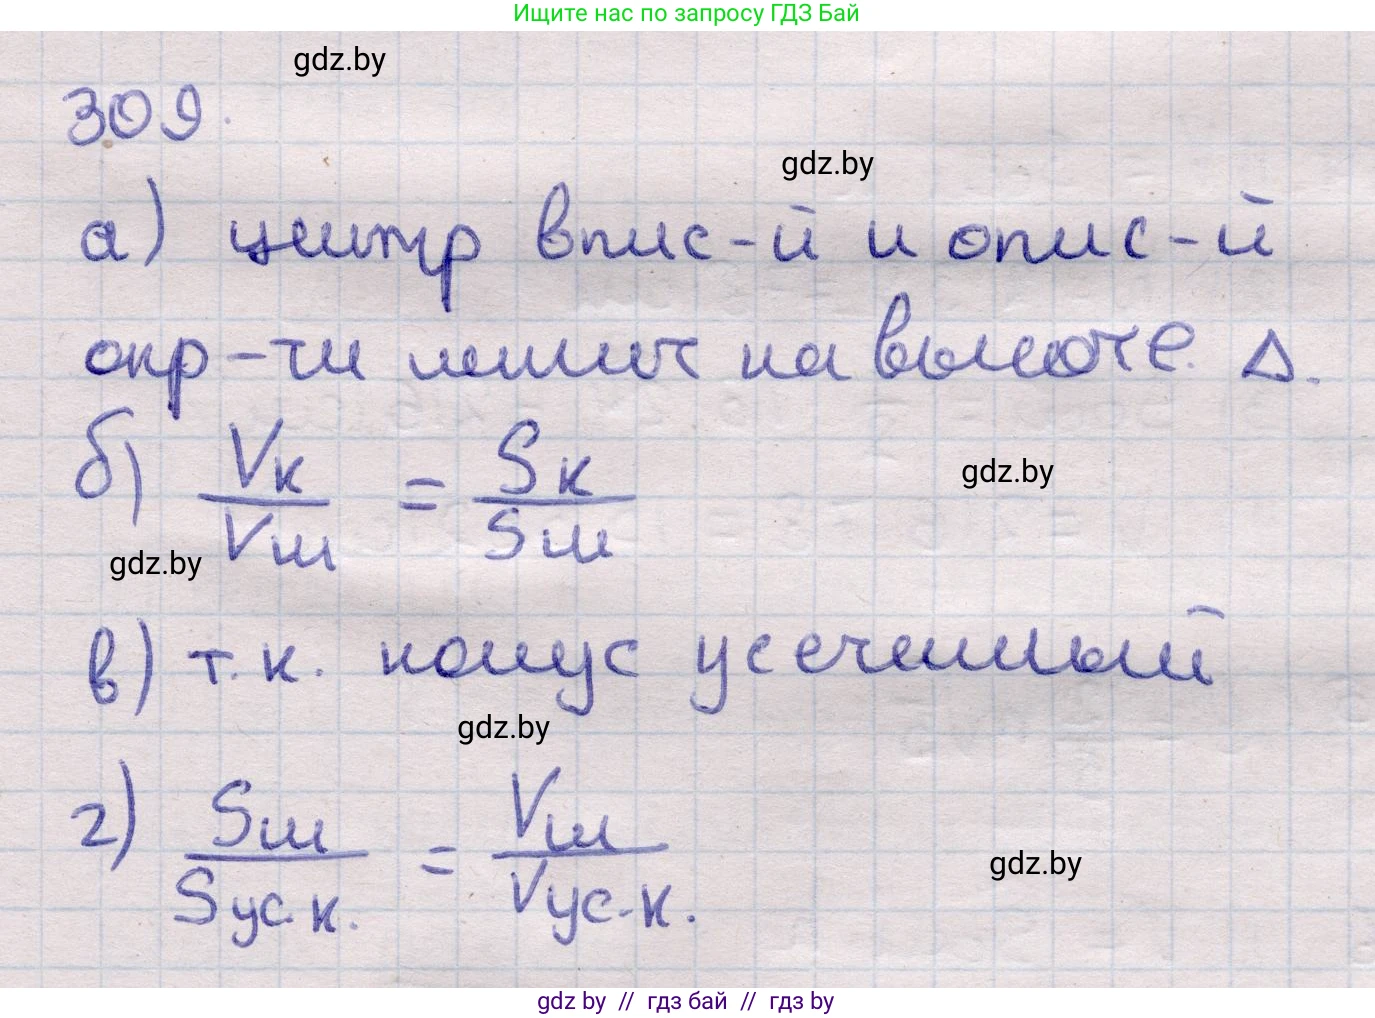 Ищите нас по запросу ГДЗ Бай
gdz.by
309.
gdz.by
а) центр впис-й и опис-й
окр-ти лежит на высоте Δ.
б) Vк/Vш = Sк/Sш
gdz.by
gdz.by
в) т.к. конус усеченный
gdz.by
г) Sш/Sус.к. = Vш/Vус.к.
gdz.by
gdz by // гдз бай // гдз by